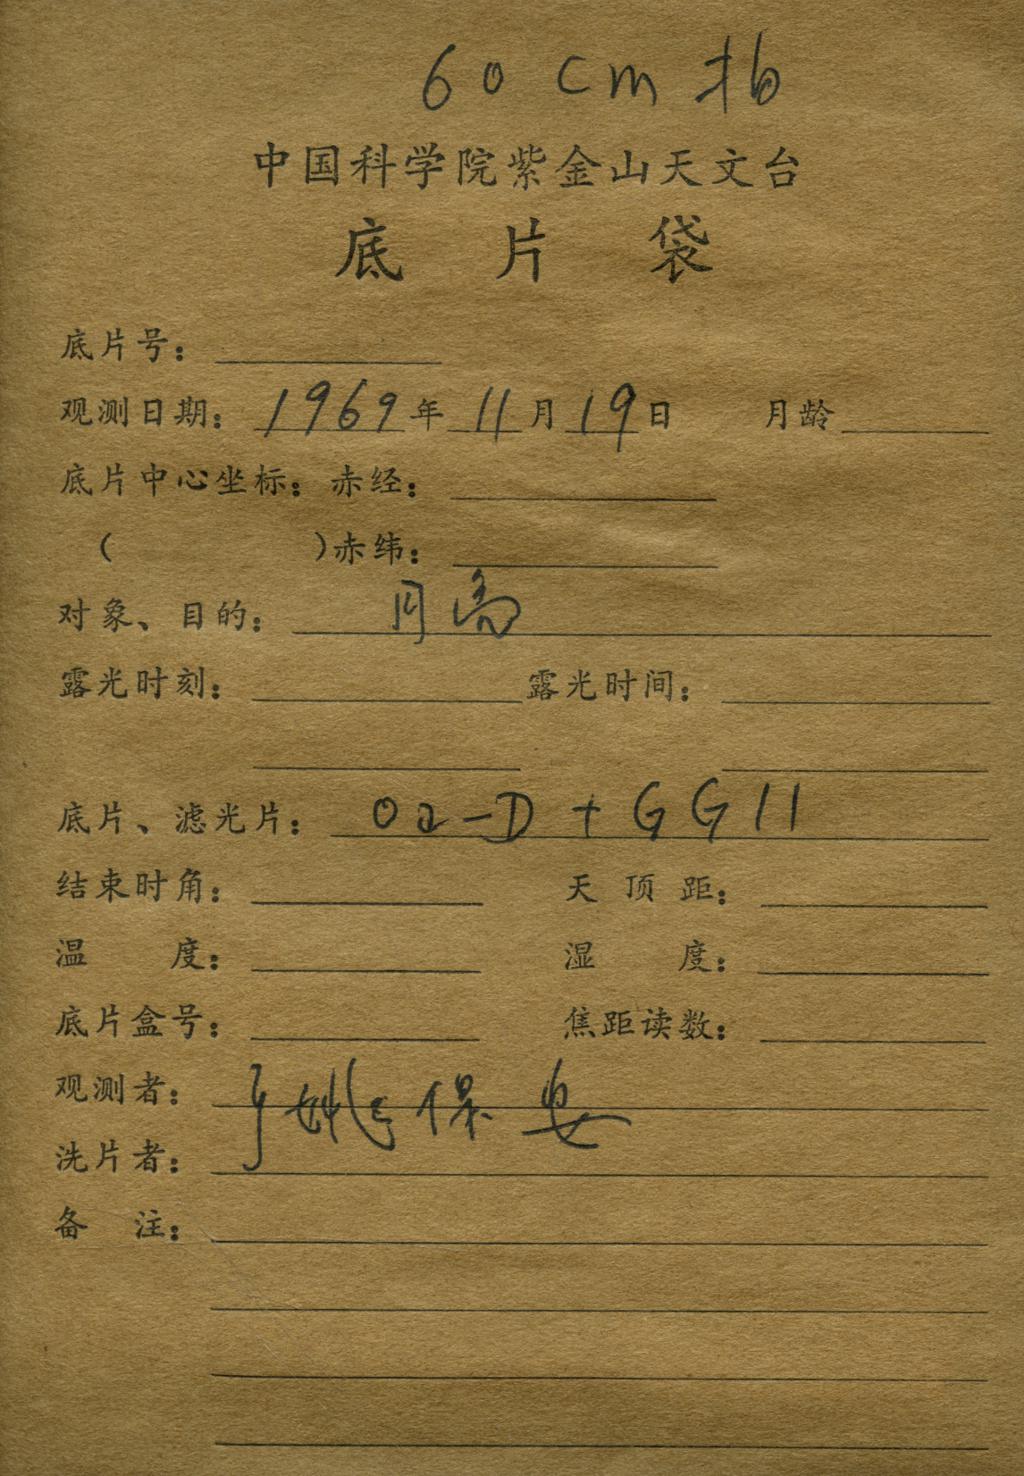 60 cm 拍
中国科学院紫金山天文台
底片袋
底片号：
观测日期：1969年11月19日 月龄
底片中心坐标：赤经：
（ ）赤纬：
对象、目的：月
露光时刻： 露光时间：
底片、滤光片：Oa-D + GG11
结束时角： 天顶距：
温度： 湿度：
底片盒号： 焦距读数：
观测者：姚保安
洗片者：
备注：